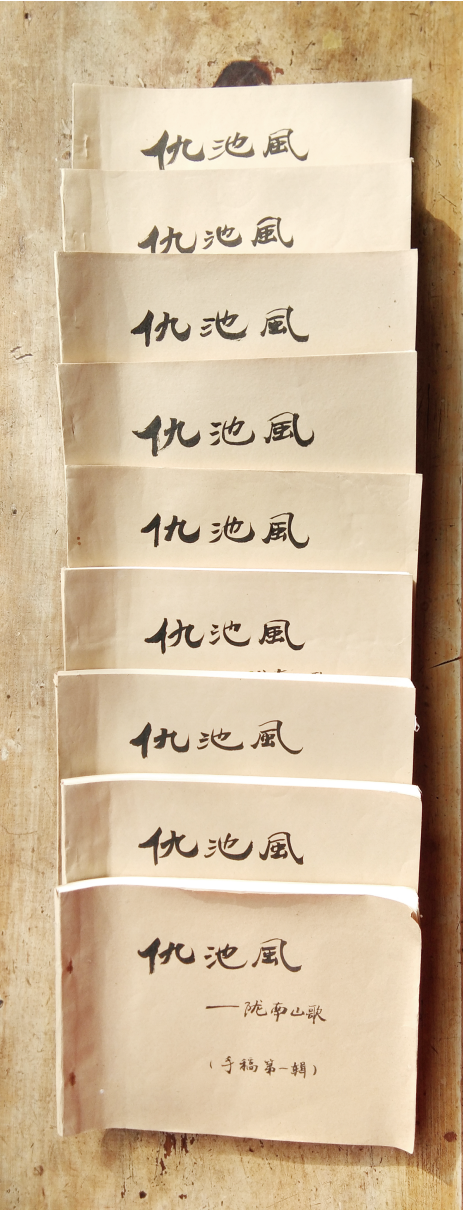 仇池風
仇池風
仇池風
仇池風
仇池風
仇池風
仇池風
仇池風
仇池風
——陇南山歌
（手稿第一輯）